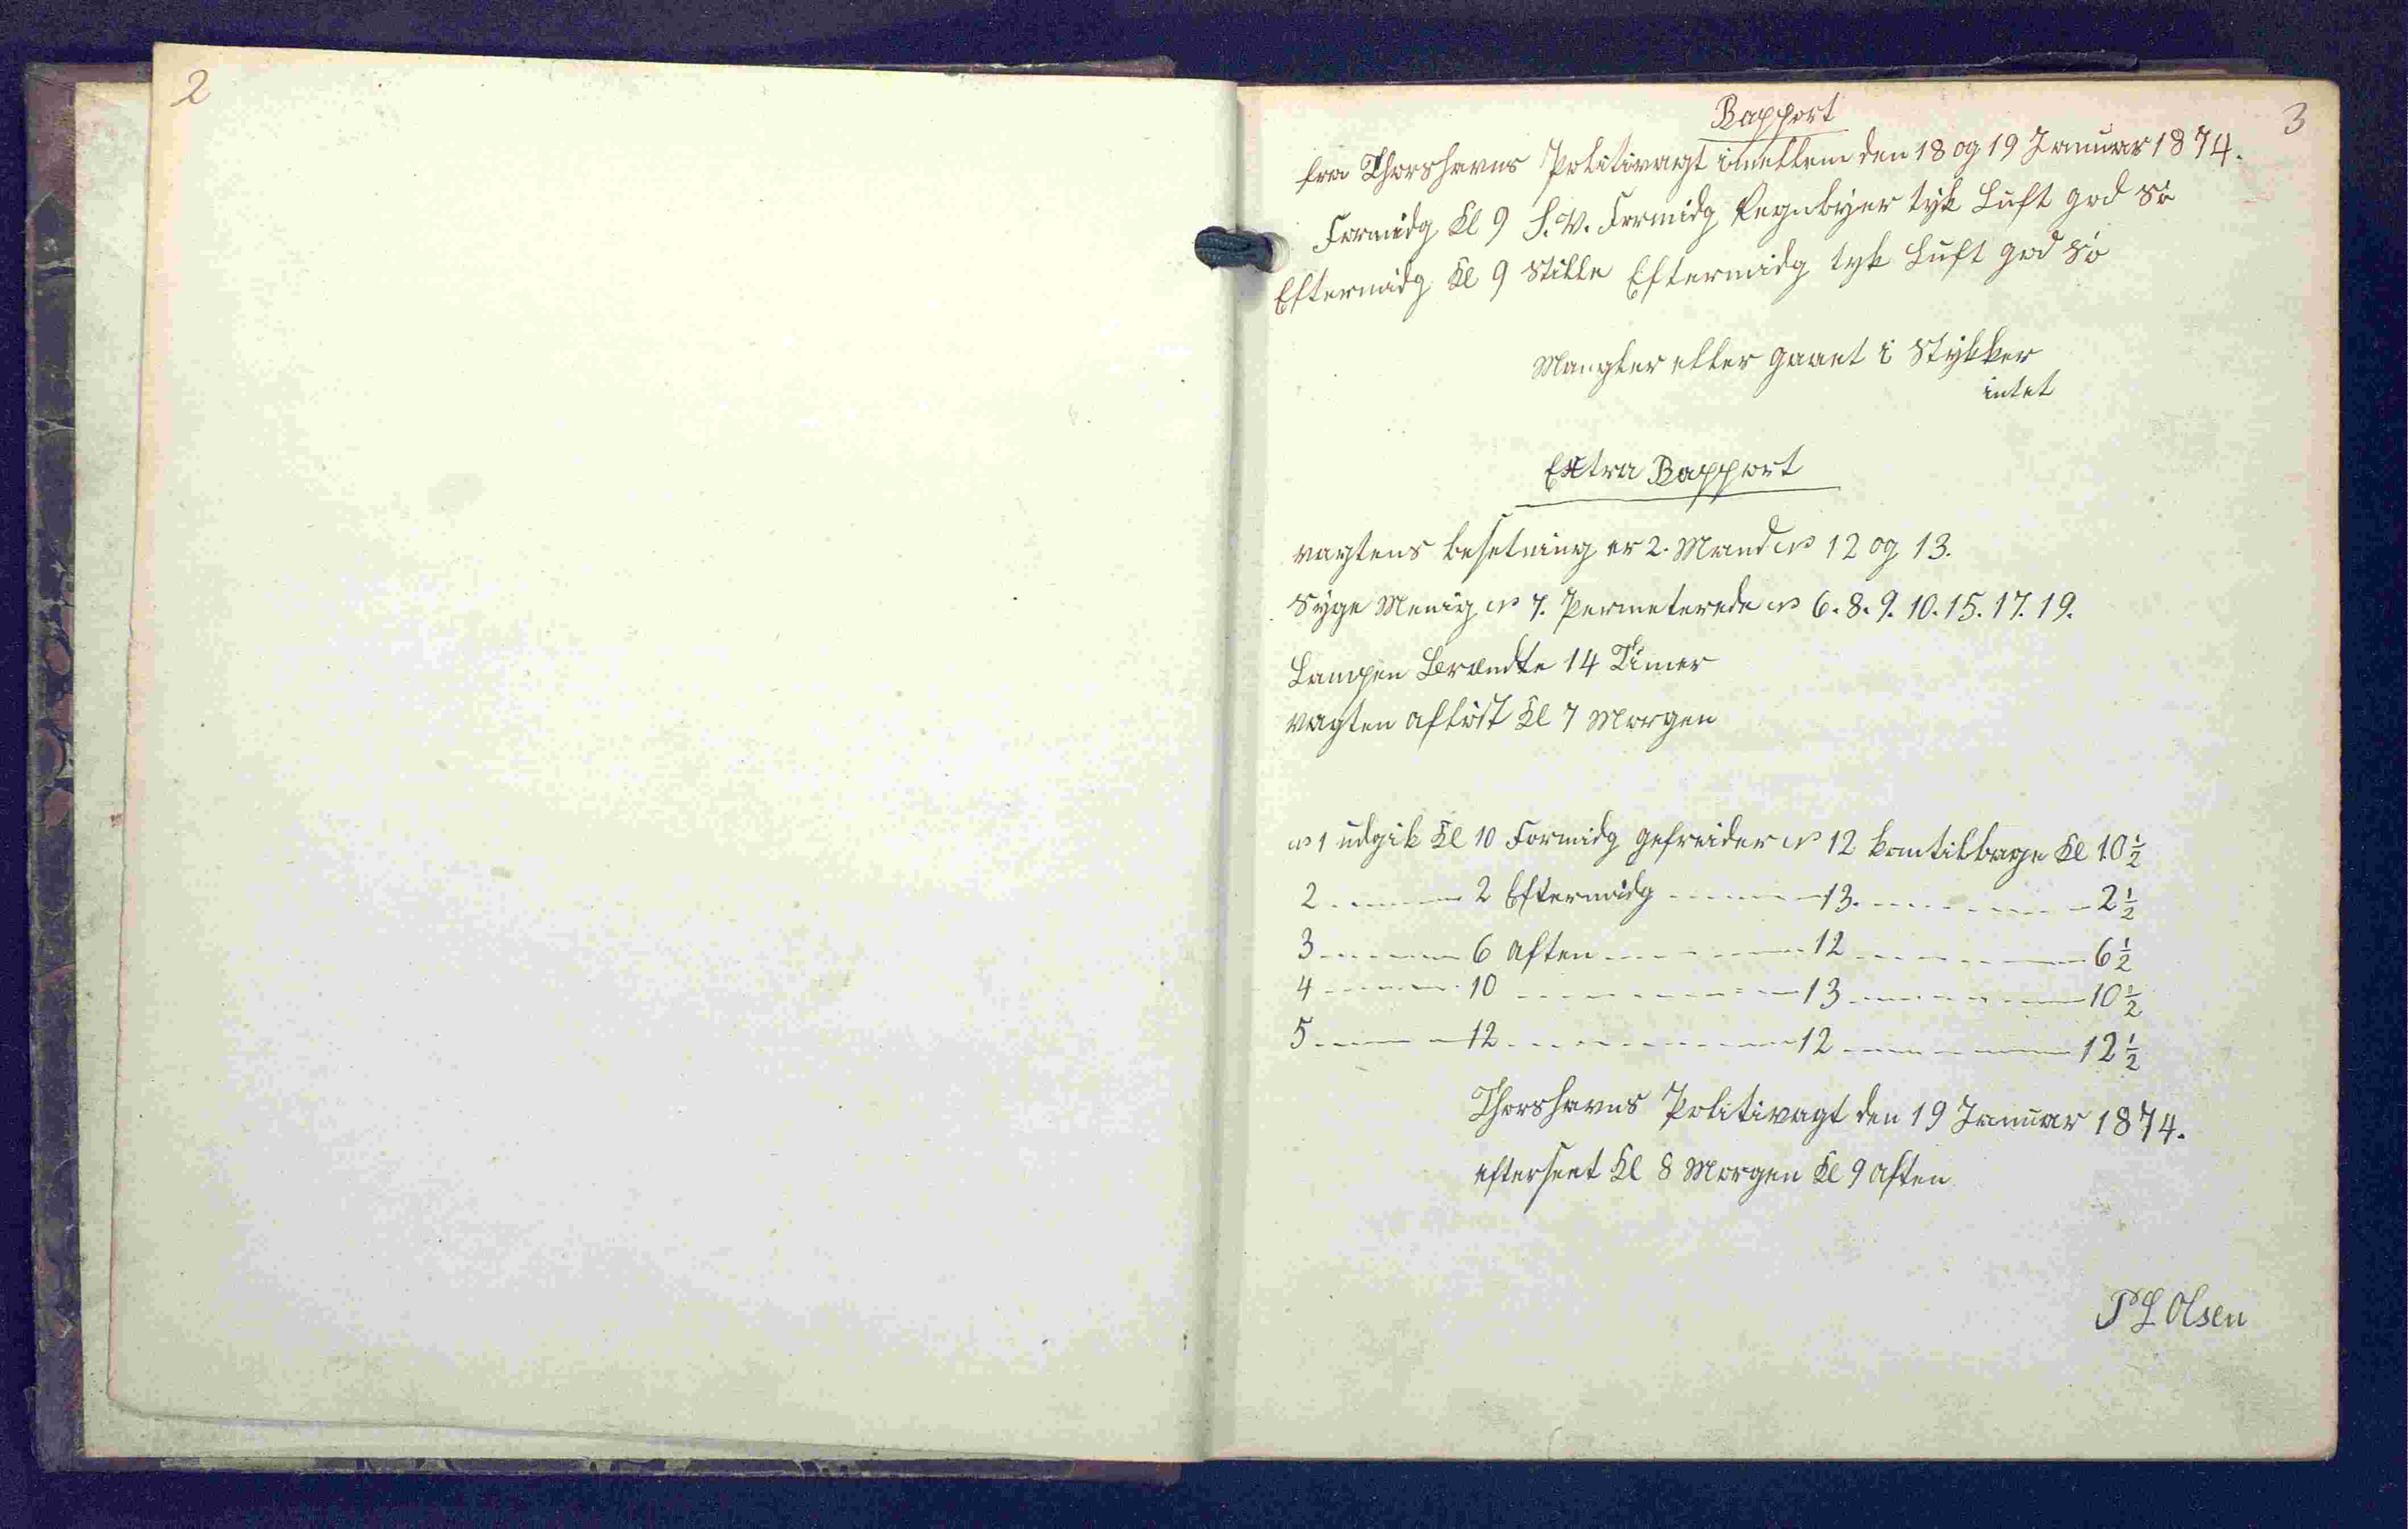 2
3
Rapport
fra Thorshavns Politivagt imellem den 18 og 19 Januar 1874.
Formidg Kl 9 S.V. Formidg Regnbyer tyk Luft god Sö
Eftermidg Kl 9 Stille Eftermidg tyk Luft god Sö
Mangler eller gaaet i Stykker
intet
Extra Rapport
vagtens besetning er 2. Mand No 12 og 13.
Syge Menig No 7. Permeterede No 6. 8. 9. 10. 15. 17. 19.
Lampen Brændte 14 Timer
vagten aflöst Kl 7 Morgen
No 1 udgik Kl 10 Formidg gefreider No 12 kom tilbage Kl 10 1/2
2 - - - 2 Eftermidg - - - 13. - - - 2 1/2
3 - - - 6 Aften - - - 12 - - - 6 1/2
4 - - - 10 - - - 13 - - - 10 1/2
5 - - - 12 - - - 12 - - - 12 1/2
Thorshavns Politivagt den 19 Januar 1874.
efterseet Kl 8 Morgen Kl 9 Aften
P L Olsen